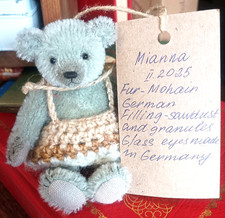 Mianna
II 2025
Fur-Mohair
German
Filling-sawdust
and granules
Glass eyes made
in Germany